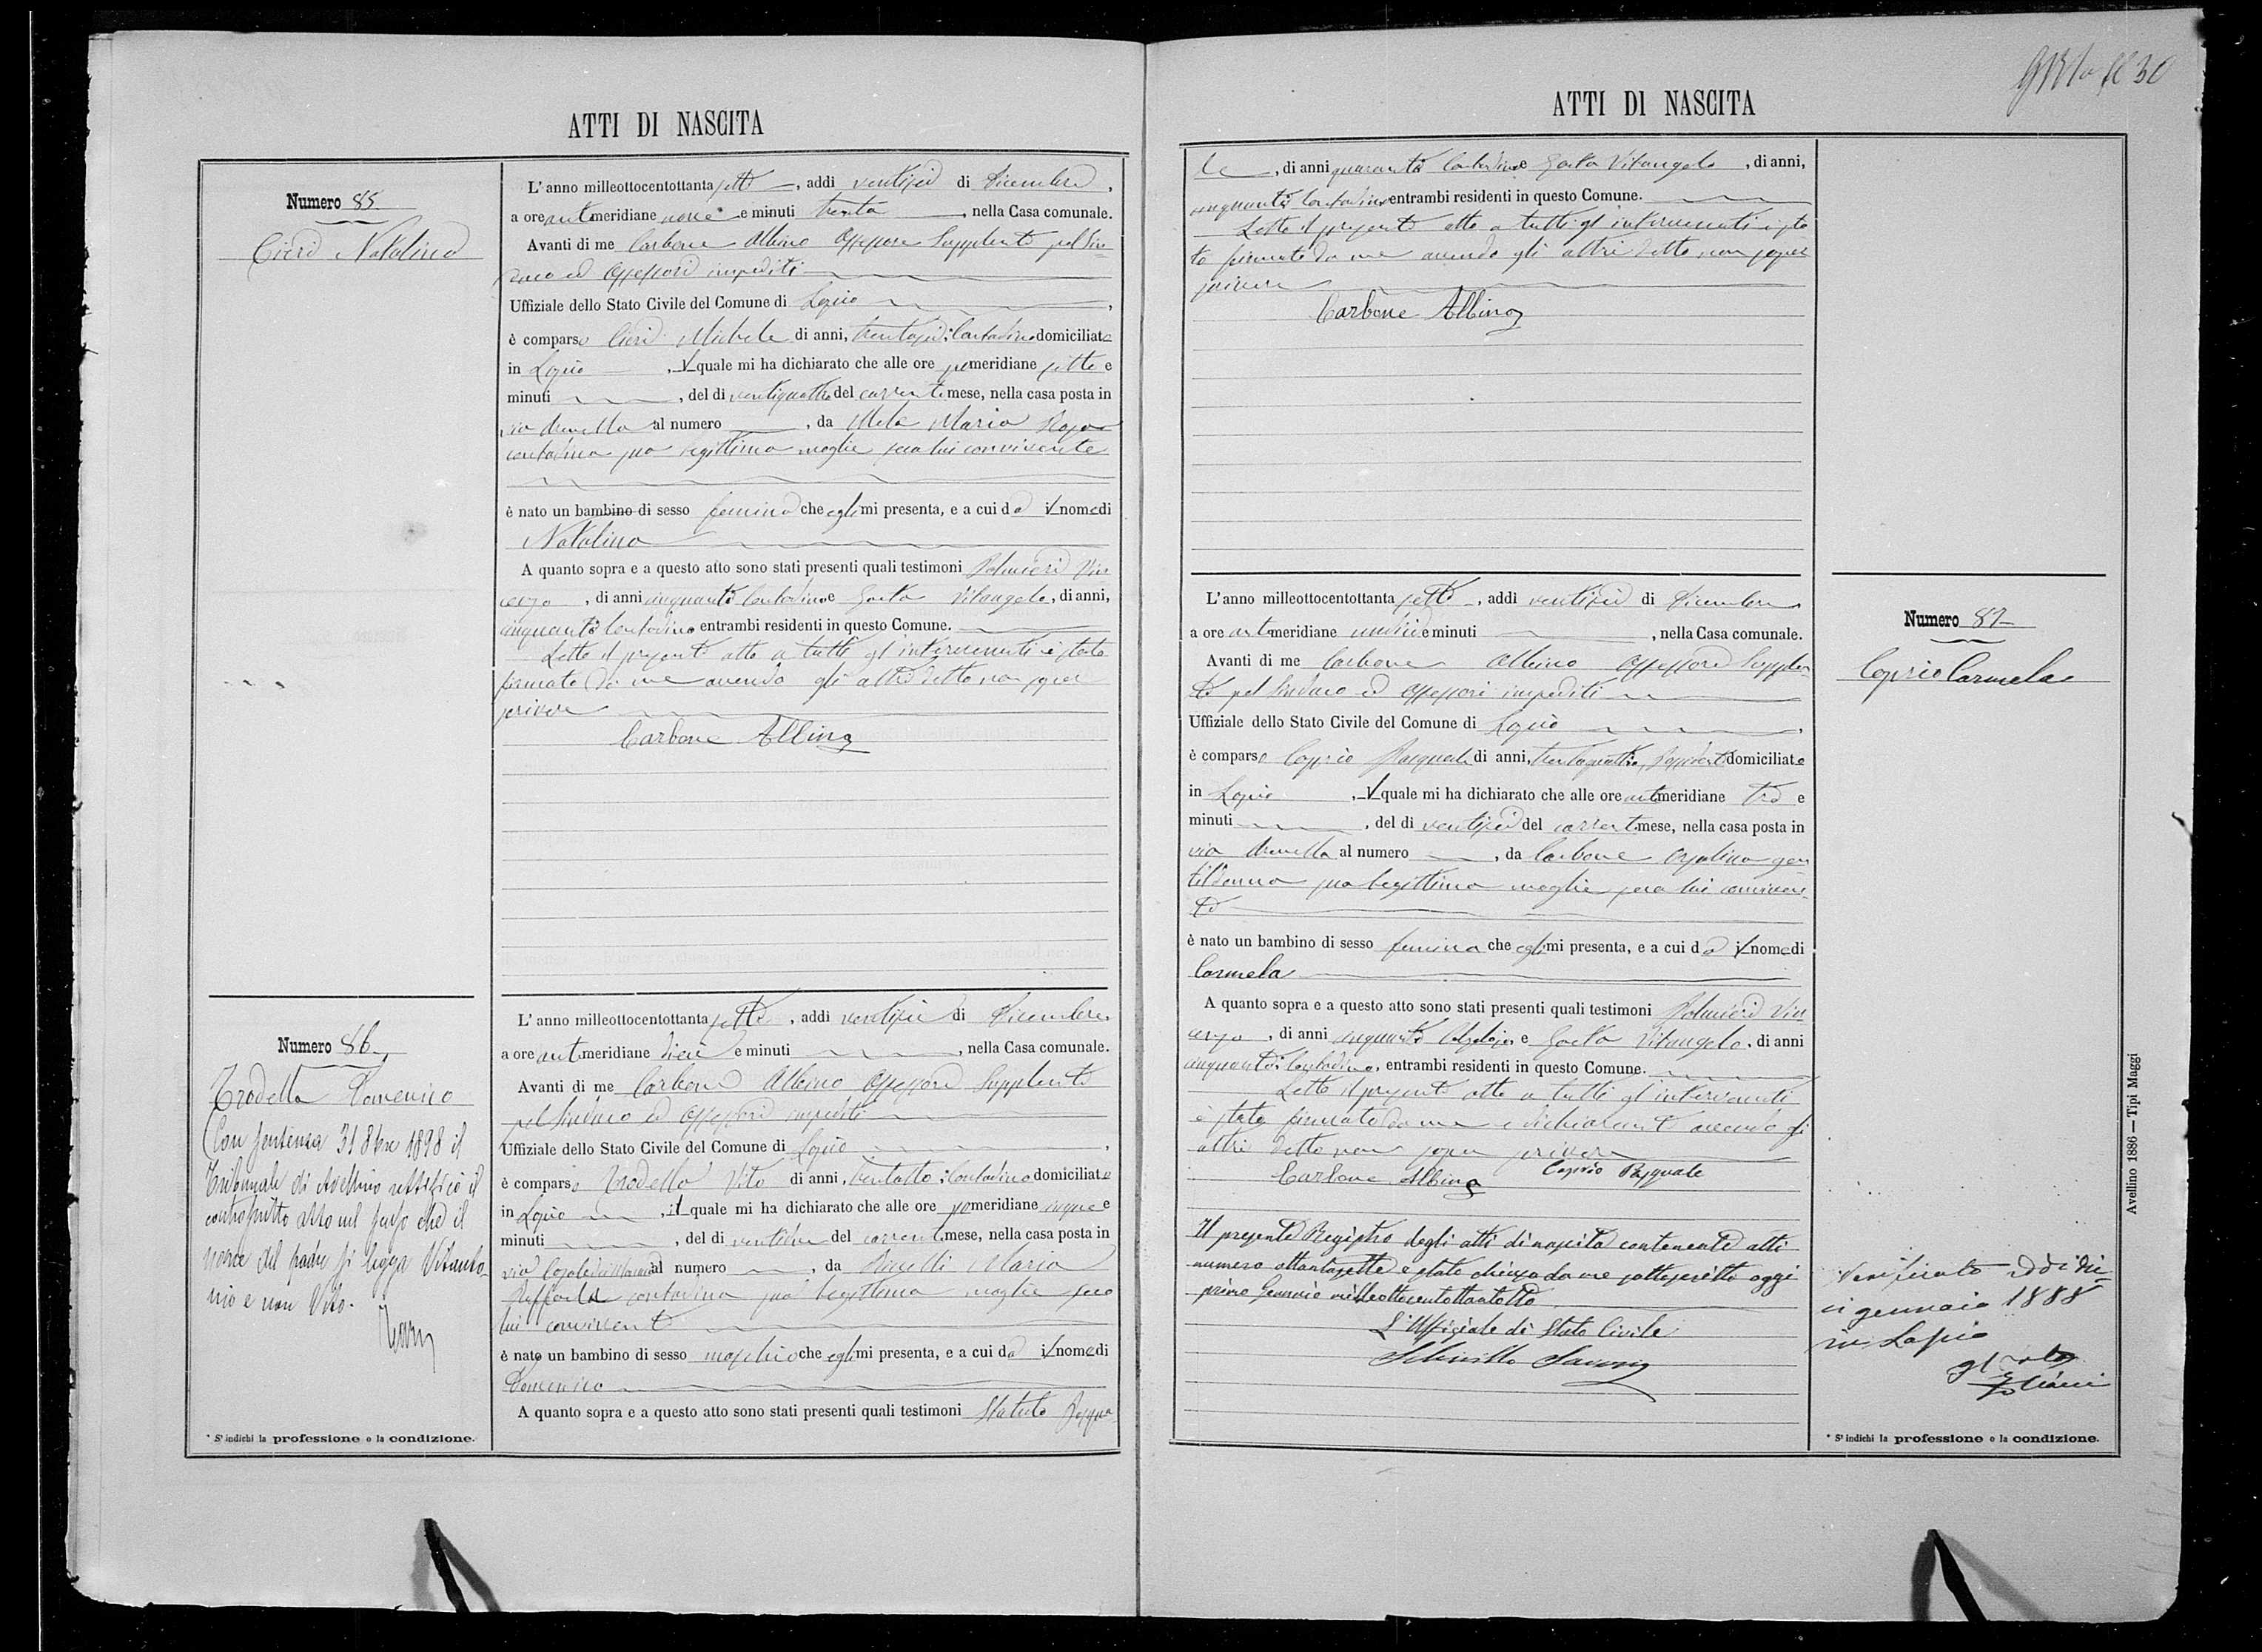 ATTI DI NASCITA
Numero 85
Cieri Natalina
L'anno milleottocentottantasette, addì ventisei di Dicembre,
a ore antimeridiane nove e minuti trenta, nella Casa comunale.
Avanti di me Carbone Albino Assessore Supplente pel Sin-
daco ed Assessori impediti
Uffiziale dello Stato Civile del Comune di Lapio,
è comparso Cieri Michele di anni, trentasei, Contadino domiciliato
in Lapio, il quale mi ha dichiarato che alle ore pomeridiane sette e
minuti, del dì ventiquattro del corrente mese, nella casa posta in
via al numero, da Mele Maria Rosa
contadina sua legittima moglie seco lui convivente
è nato un bambino di sesso femina che egli mi presenta, e a cui dà il nome di
Natalina
A quanto sopra e a questo atto sono stati presenti quali testimoni Palmieri Vin
cenzo, di anni cinquanta Contadino e Gaeta Vitangelo, di anni,
cinquanta Contadino entrambi residenti in questo Comune.
Letto il presente atto a tutti gl'intervenuti è stato
firmato da me avendo gli altri detto non saper
scrivere
Carbone Albino
Numero 86
Trodella Domenico
Con sentenza 31 8bre 1898 il
Tribunale di Avellino rettificò il
controscritto atto nel senso che il
nome del padre si legga Vitanto-
nio e non Vito.
L'anno milleottocentottantasette, addì ventisei di Dicembre,
a ore antimeridiane dieci e minuti, nella Casa comunale.
Avanti di me Carbone Albino Assessore Supplente
pel Sindaco ed Assessori impediti
Uffiziale dello Stato Civile del Comune di Lapio,
è comparso Trodella Vito di anni, ventotto, Contadino domiciliato
in Lapio, il quale mi ha dichiarato che alle ore pomeridiane cinque e
minuti, del dì ventidue del corrente mese, nella casa posta in
via al numero, da Maria
Raffaela contadina sua legittima moglie seco
lui convivente
è nato un bambino di sesso maschio che egli mi presenta, e a cui dà il nome di
Domenico
A quanto sopra e a questo atto sono stati presenti quali testimoni Statuto Pasqua
* S'indichi la professione o la condizione.
ATTI DI NASCITA
le, di anni quaranta Contadino e Gaeta Vitangelo, di anni,
cinquanta Contadino entrambi residenti in questo Comune.
Letto il presente atto a tutti gl'intervenuti è sta
to firmato da me avendo gli altri detto non saper
scrivere
Carbone Albino
L'anno milleottocentottantasette, addì ventisei di Dicembre
a ore antimeridiane undici e minuti, nella Casa comunale.
Avanti di me Carbone Albino Assessore Supplen-
te pel Sindaco ed Assessori impediti
Uffiziale dello Stato Civile del Comune di Lapio,
è comparso Caprio Pasquale di anni, trentaquattro, domiciliato
in Lapio, il quale mi ha dichiarato che alle ore antimeridiane tre e
minuti, del dì ventisei del corrente mese, nella casa posta in
via al numero, da Carbone gen
tildonna sua legittima moglie seco lui conviven-
te
è nato un bambino di sesso femina che egli mi presenta, e a cui dà il nome di
Carmela
A quanto sopra e a questo atto sono stati presenti quali testimoni Palmieri Vin
cenzo, di anni cinquanta e Gaeta Vitangelo, di anni
cinquanta, Contadino, entrambi residenti in questo Comune.
Letto il presente atto a tutti gl'intervenuti
è stato firmato da me e dichiarante avendo gli
altri detto non saper scrivere
Carbone Albino Caprio Pasquale
Il presente Registro degli atti di nascita contenente atti
numero ottantasette è stato chiuso da me sottoscritto oggi
primo Gennaio milleottocentottantotto
L'Uffiziale di Stato Civile
Numero 87
Caprio Carmela
Verificato addì die-
ci gennaio 1888
in Lapio
* S'indichi la professione o la condizione.
Avellino 1886 — Tipi Maggi